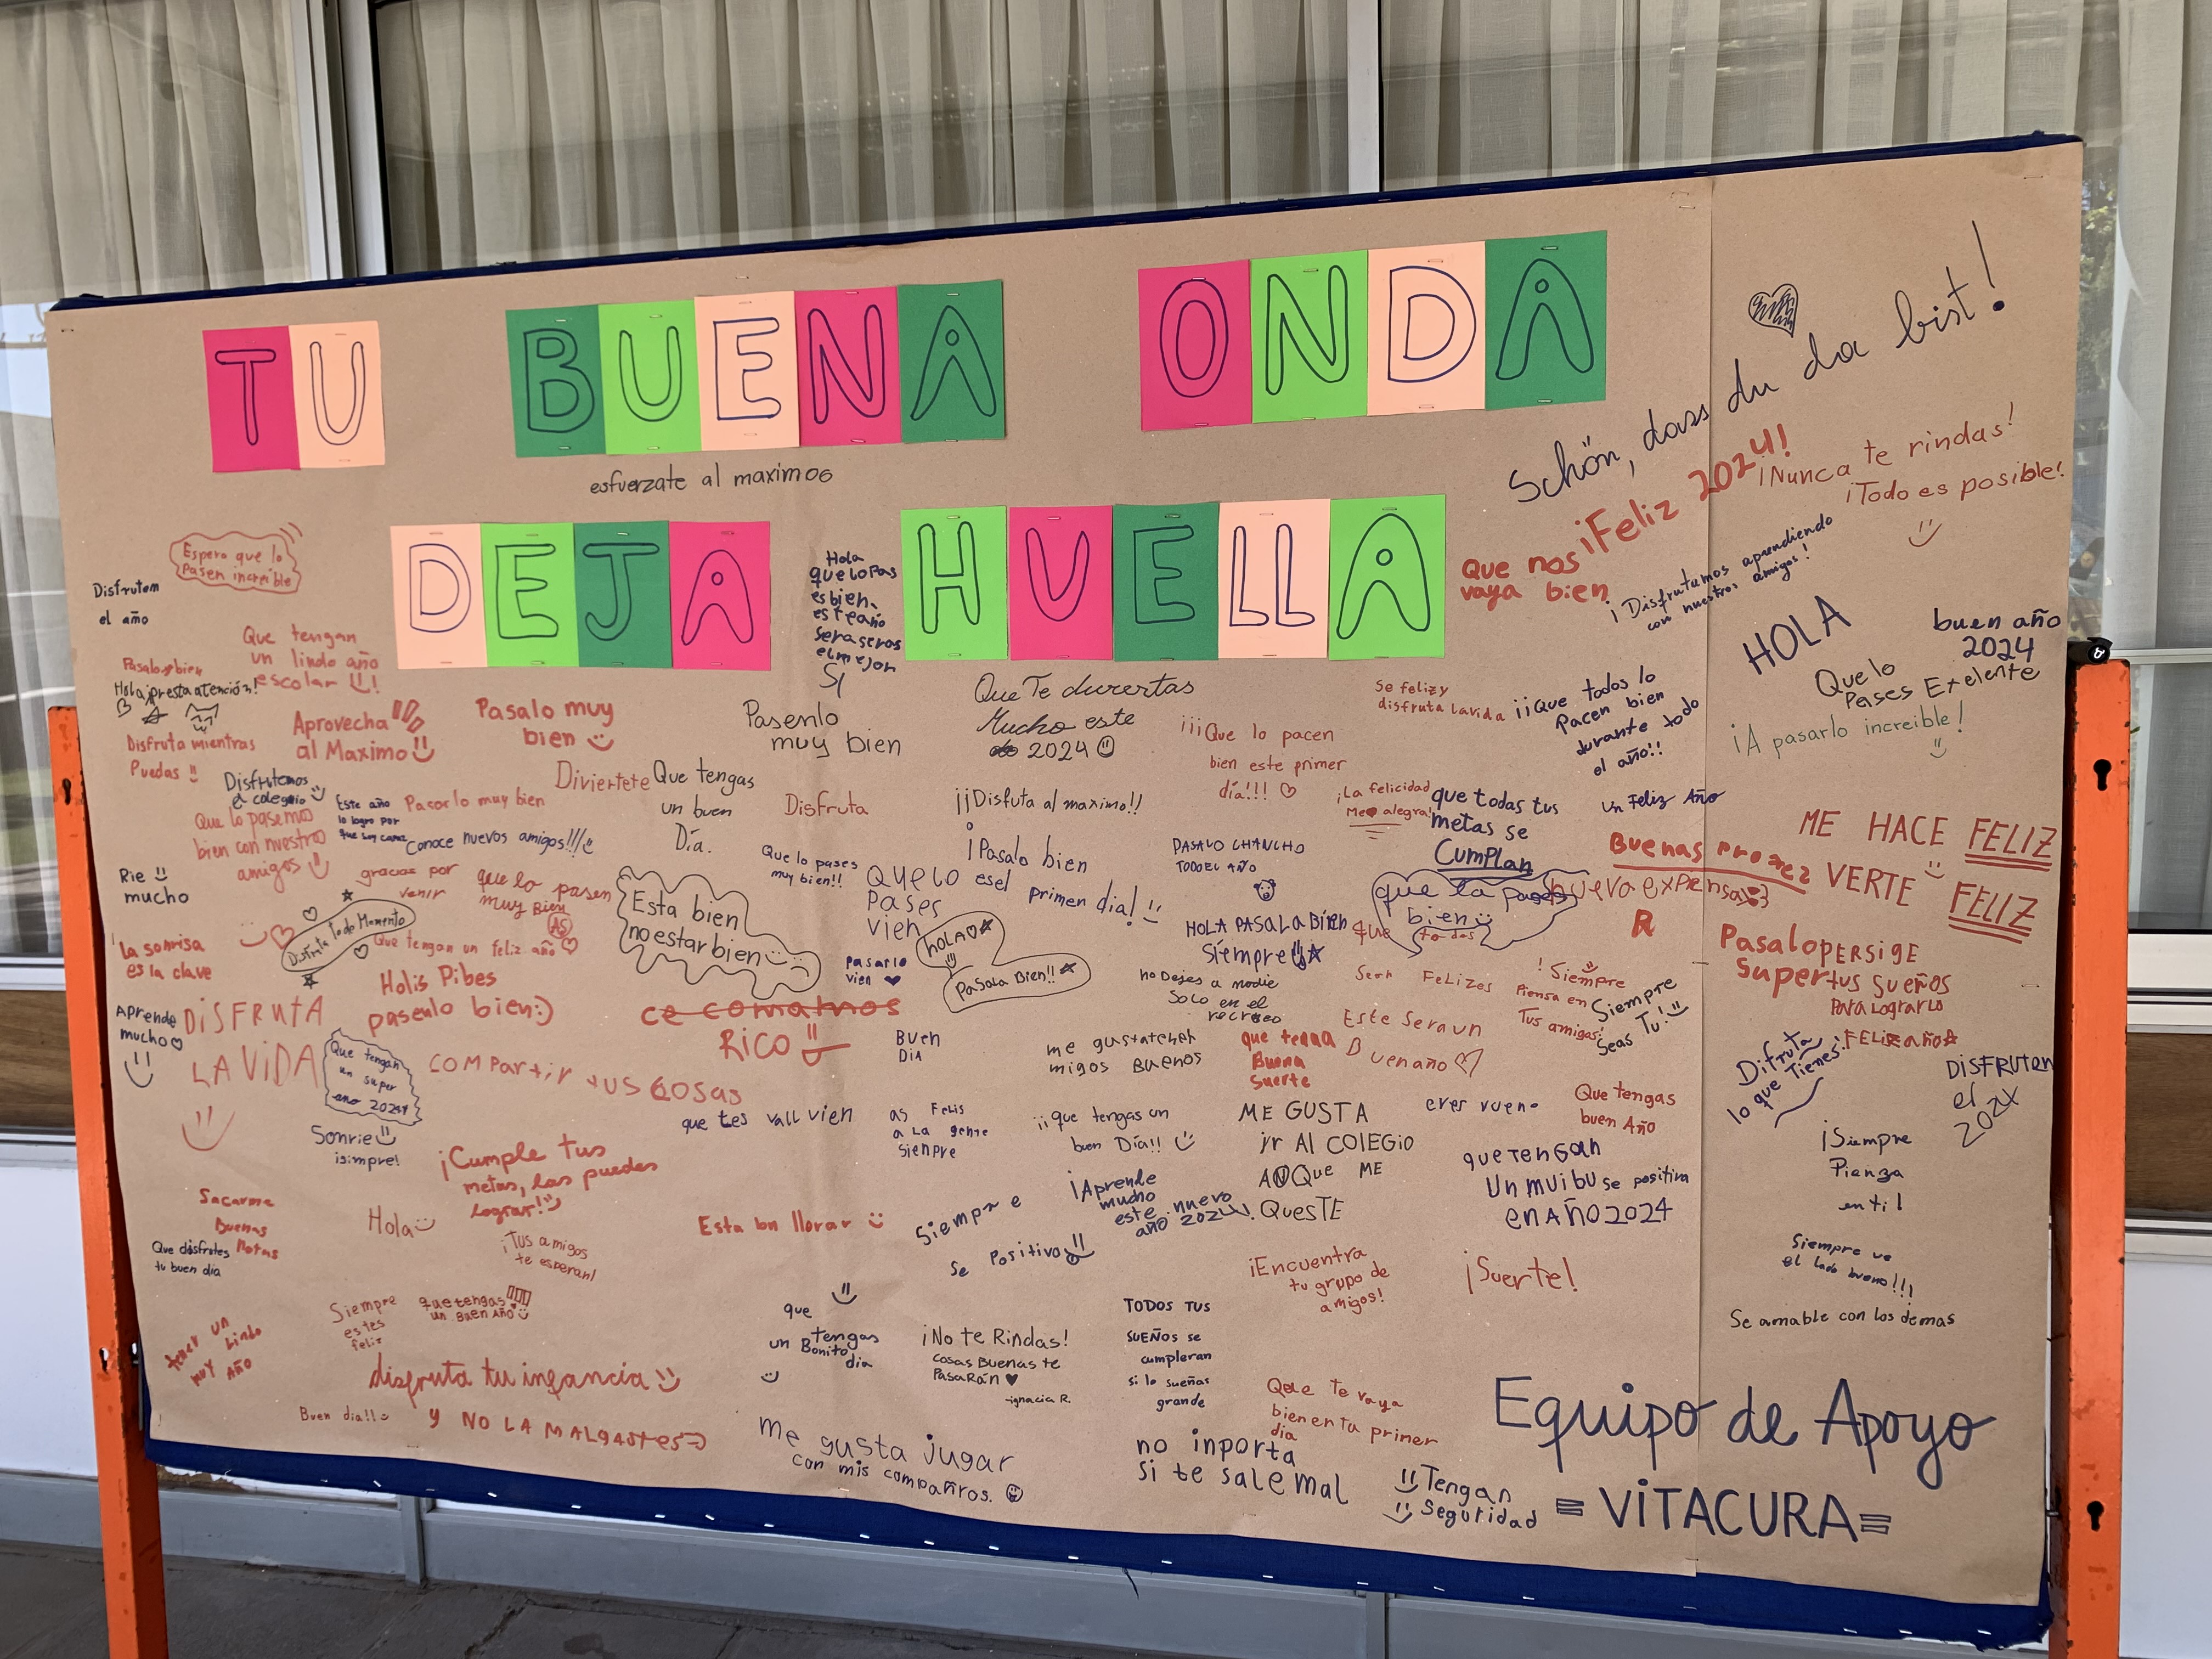 TU BUENA ONDA
esfuerzate al maximos
DEJA HUELLA
Schön, dass du da bist!
¡Feliz 2024!
¡Nunca te rindas!
¡Todo es posible!
Que nos
vaya bien
¡Disfrutamos aprendiendo
con nuestros amigos!
HOLA
buen año
2024
Que lo
Pases Exelente
¡A pasarlo increible!
Espero que lo
Pasen increíble
Disfruten
el año
Que tengan
un lindo año
escolar
Pasalo bien
Hola ¡presta atención!
Disfruta mientras
Puedas
Aprovecha
al Maximo
Pasalo muy
bien
Hola
que lo pas
es bien,
este año
seras
el mejor
Pasenlo
muy bien
Que Te diviertas
Mucho este
2024
¡¡¡Que lo pacen
bien este primer
día!!!
Se feliz y
disfruta la vida
¡¡Que todos lo
Pacen bien
durante todo
el año!!
Disfrutemos
el colegio
Que lo pasemos
bien con nuestros
amigos
Este año
lo logro por
que soy capaz
Pasarlo muy bien
Conoce nuevos amigos!!!
Diviertete
Que tengas
un buen
Día.
Disfruta
¡¡Disfuta al maximo!!
¡Pasalo bien
esel primen dia!
¡La felicidad
Me alegra!
que todas tus
metas se
cumplan
un Feliz Año
ME HACE FELIZ
VERTE FELIZ
Rie
mucho
gracias por
venir
que lo pasen
muy Bien
Esta bien
no estar bien
Que lo pases
muy bien!!
QUELO
Pases
Vien
PASALO CHANCHO
TODO EL AÑO
que la pases
bien
Buenas
nueva
La sonrisa
es la clave
Disfruta todo Momento
Que tengan un feliz año
Holis Pibes
pasenlo bien:)
Pasarlo
vien
HOLA
PASALA BIEN!!
HOLA PASALA BIEN
Siempre
que todos
sean Felizes
no Dejes a nadie
solo en el
recreo
¡Siempre
Piensa en
Tus amigos!
Siempre
seas Tu!
Pasalo
super
PERSIGE
tus sueños
PARA LOGRARLO
Aprende
mucho
DISFRUTA
LA VIDA
Que tengan
un super
año 2024
ce comamos
RICO
COMPARTIR TUS COSAS
Buen
DIA
me gusta
migos Buenos
que tenga
Buena
Suerte
Este sera un
Buen año
Difruta
lo que Tienes
¡FELIZ año
DISFRUTEN
el
2024
Sonrie
¡simpre!
que tes vall vien
as Felis
a La gente
Siempre
¡¡que tengas un
buen Día!!
ME GUSTA
ir Al COLEGIO
AUNQue ME
QuesTE
eres vueno
Que tengas
buen Año
¡Siempre
Pienza
en ti!
¡Cumple tus
metas, las puedes
lograr!
que TenGan
un muibu se positiva
en AÑO 2024
Sacarme
Buenas
Notas
Que disfrutes
tu buen día
Hola
¡Tus amigos
te esperan!
Esta bn llorar
Siempre
se Positivo
¡Aprende
mucho
este nuevo
año 2024!
¡Encuentra
tu grupo de
amigos!
¡Suerte!
Siempre ve
el lado bueno!!!
Se amable con los demas
tener un
muy lindo
año
Siempre
estes
feliz
que tengas
un Buen Año
que
tengas
un Bonito
dia
¡No te Rindas!
cosas Buenas te
PasaRán
-ignacia R.
TODOS TUS
SUEÑOS se
cumpleran
si lo sueñas
grande
disfruta tu infancia
Y NO LA MALGASTES
Buen dia!!
me gusta jugar
con mis compañiros.
Que te vaya
bien en tu primer
dia
no inporta
si te sale mal
Tengan
Seguridad
Equipo de Apoyo
= VITACURA =